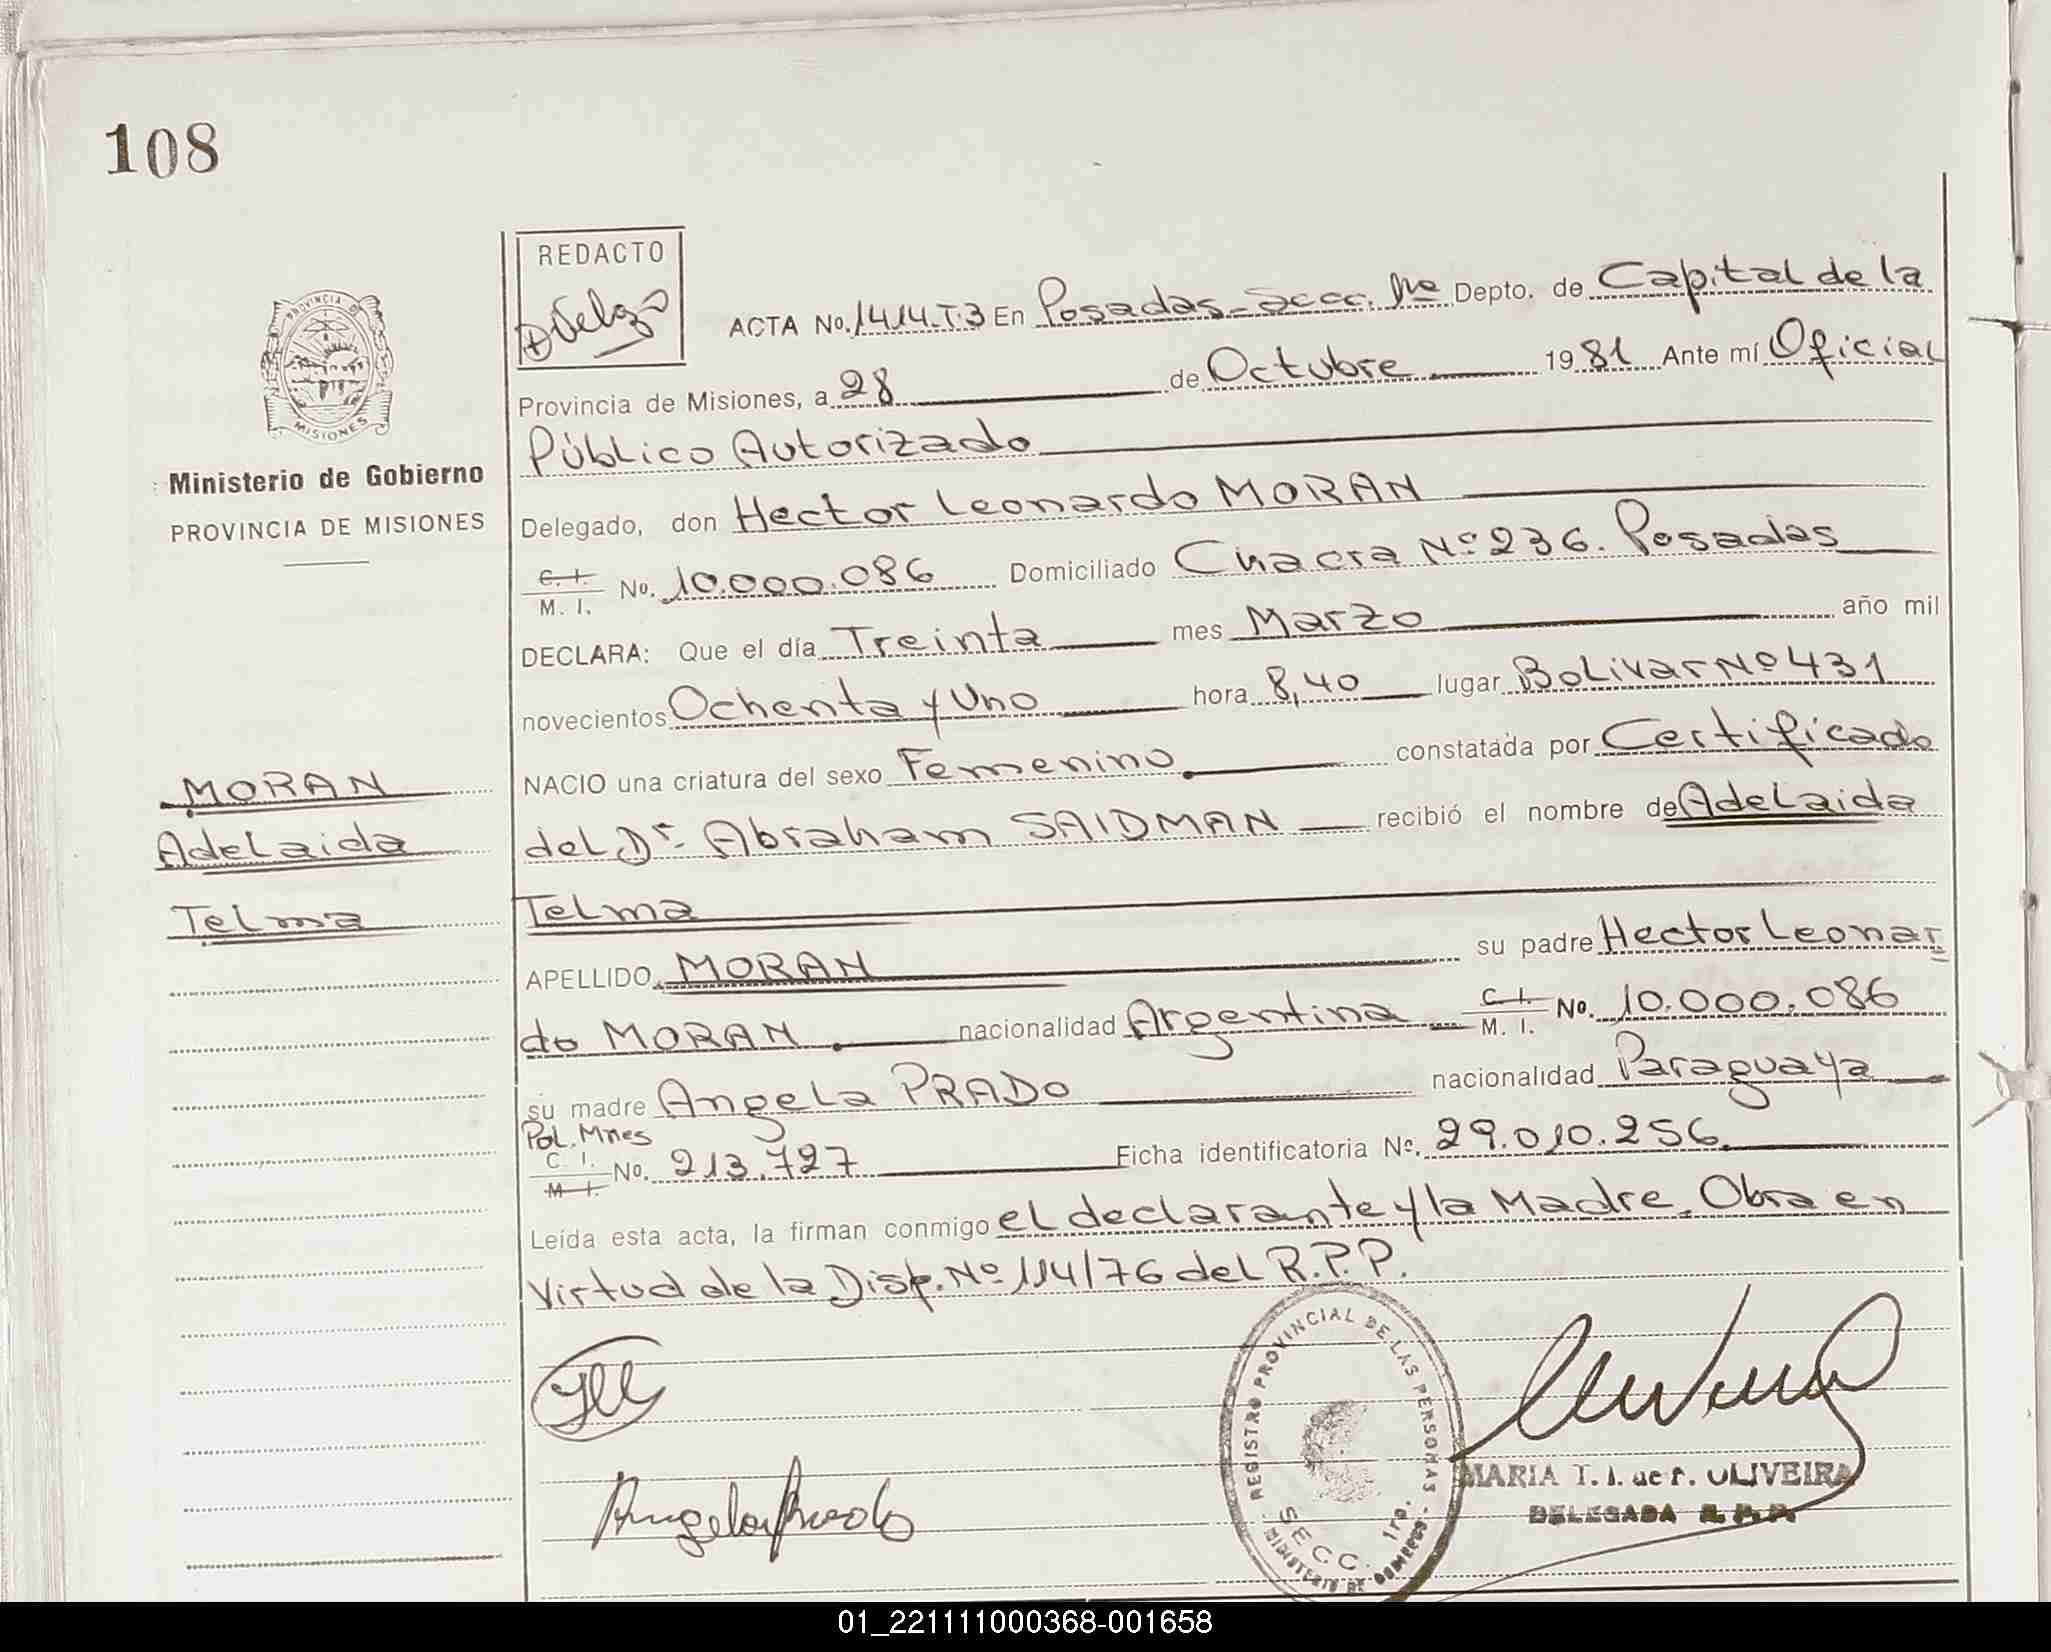 108
REDACTO
ACTA No. 1414-T.3 En Posadas - Secc. 1ra Depto. de Capital de la
Provincia de Misiones, a 28 de Octubre 1981 Ante mí Oficial
Público Autorizado
Delegado, don Hector Leonardo MORAN
C. I. M. I. No. 10.000.086 Domiciliado Chacra Nº 236. Posadas
DECLARA: Que el día Treinta mes Marzo año mil
novecientos Ochenta y Uno hora 8,40 lugar Bolivar Nº 431
NACIO una criatura del sexo Femenino constatada por Certificado
del Dr. Abraham SAIDMAN recibió el nombre de Adelaida
Telma
APELLIDO MORAN su padre Hector Leonar
do MORAN nacionalidad Argentina C. I. M. I. No. 10.000.086
su madre Angela PRADO nacionalidad Paraguaya
Pol. Mnes
C. I. M. I. No. 213.727 Ficha identificatoria No. 29.010.256
Leída esta acta, la firman conmigo el declarante y la Madre. Obra en
Virtud de la Disp. Nº 114/76 del R.P.P.
PROVINCIA DE MISIONES
Ministerio de Gobierno
PROVINCIA DE MISIONES
MORAN
Adelaida
Telma
Angela Prado
REGISTRO PROVINCIAL DE LAS PERSONAS -
SECC. 1ra.
MINISTERIO DE
MARIA T. I. de P. OLIVEIRA
DELEGADA R. P. P.
01_221111000368-001658